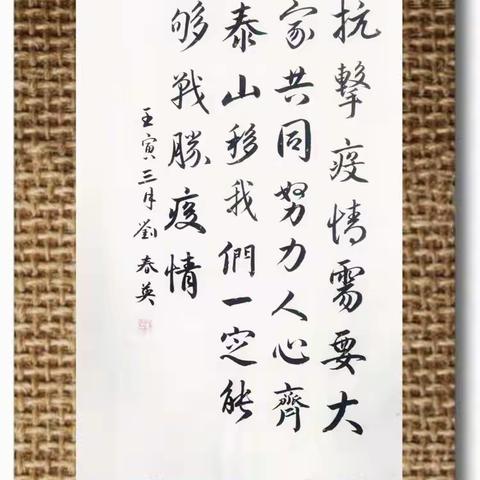 抗擊疫情需要大
家共同努力人心齊
泰山移我們一定能
够戰勝疫情
壬寅三月劉春英